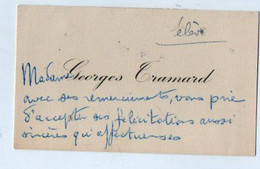 élève
Madame Georges Tramard
avec ses remerciements, vous prie
d'accepter ses félicitations aussi
sincères qu'affectueuses